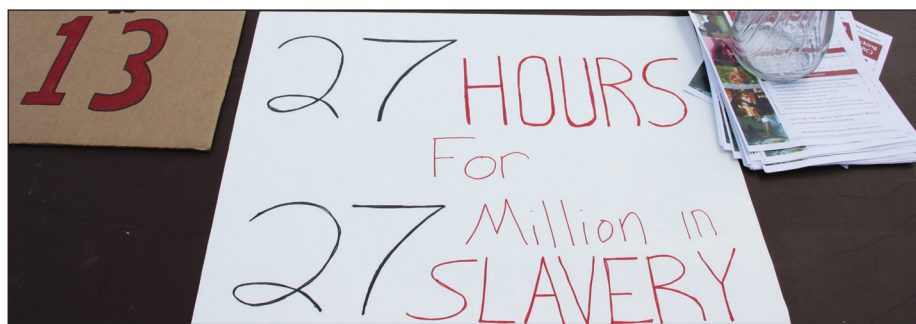 13
27 HOURS
For
27 Million in
SLAVERY